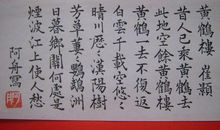 黄鶴樓 崔顥
昔人已乘黄鶴去
此地空餘黄鶴樓
黄鶴一去不復返
白雲千載空悠々
晴川歷々漢陽樹
芳草萋々鸚鵡洲
日暮鄉關何處是
煙波江上使人愁
阿 寫